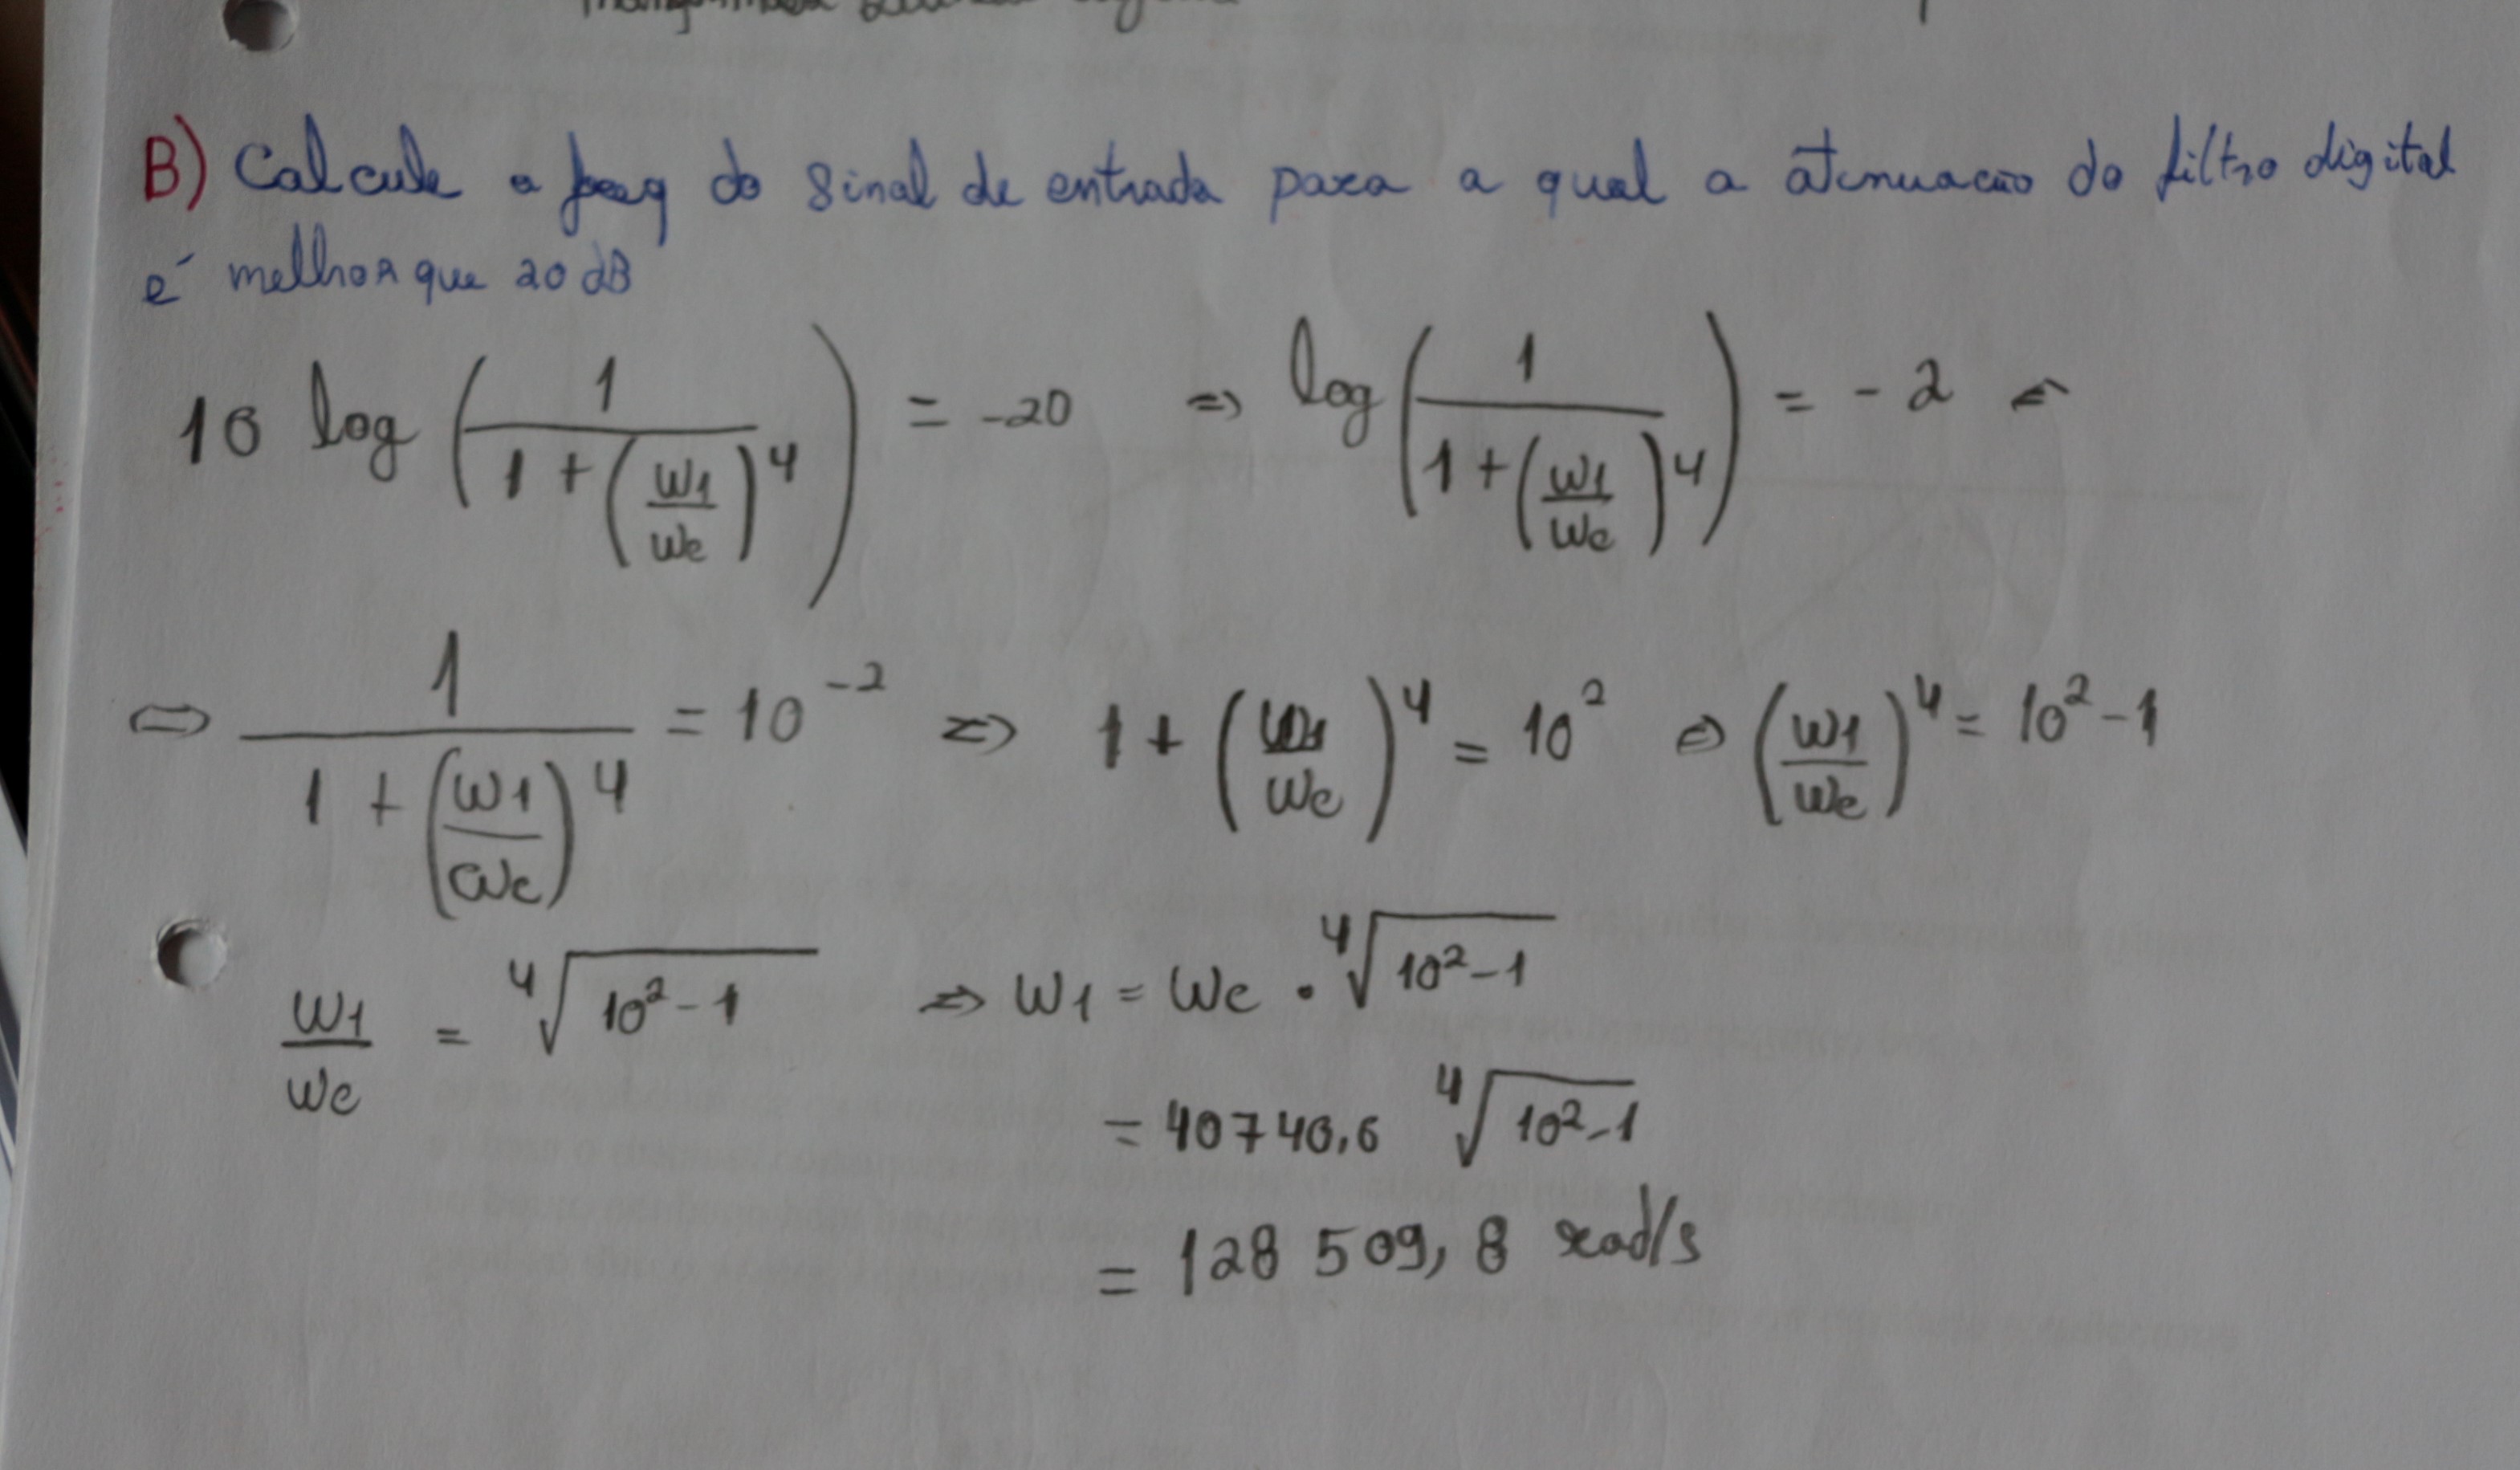 B) Calcule a freq do sinal de entrada para a qual a atenuacao do filtro digital
é melhor que 20 dB
10 log (1 / (1 + (w1/wc)^4)) = -20 => log (1 / (1 + (w1/wc)^4)) = -2 <=
<=> 1 / (1 + (w1/wc)^4) = 10^-2 <=> 1 + (w1/wc)^4 = 10^2 <=> (w1/wc)^4 = 10^2 - 1
w1/wc = ⁴√(10^2 - 1) => w1 = wc . ⁴√(10^2 - 1)
= 40740,6 ⁴√(10^2 - 1)
= 128 509, 8 rad/s